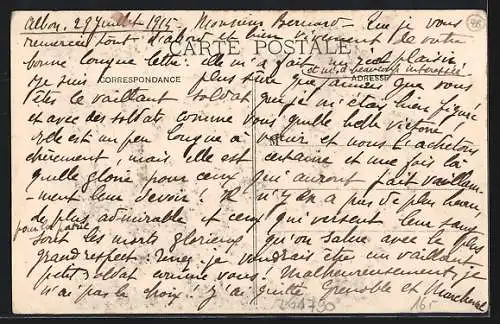 Albon. 29 Juillet 1915. Monsieur Bernard. Que je vous
remercie tout d'abord et bien vivement de votre
CARTE POSTALE
bonne longue lettre: elle m'a fait un réel plaisir
et m'a beaucoup intéressée
CORRESPONDANCE
ADRESSE
Je suis plus sûre que jamais que vous
êtes le vaillant soldat que je m'étais bien figuré
et avec des soldats comme vous quelle belle victoire
M
Elle est un peu longue à venir et nous l'achetons
chèrement, mais elle est certaine et une fois là
quelle gloire pour ceux qui auront fait vaillam-
ment leur devoir! Il n'y en a pas de plus beau
de plus admirable et ceux qui versent leur sang
pour la patrie
sont les morts glorieux qu'on salue avec le plus
grand respect: Tenez je vendrais être un vaillant
petit soldat comme vous! Malheureusement, je
n'ai pas le choix! J'ai quitté Grenoble et
16.-